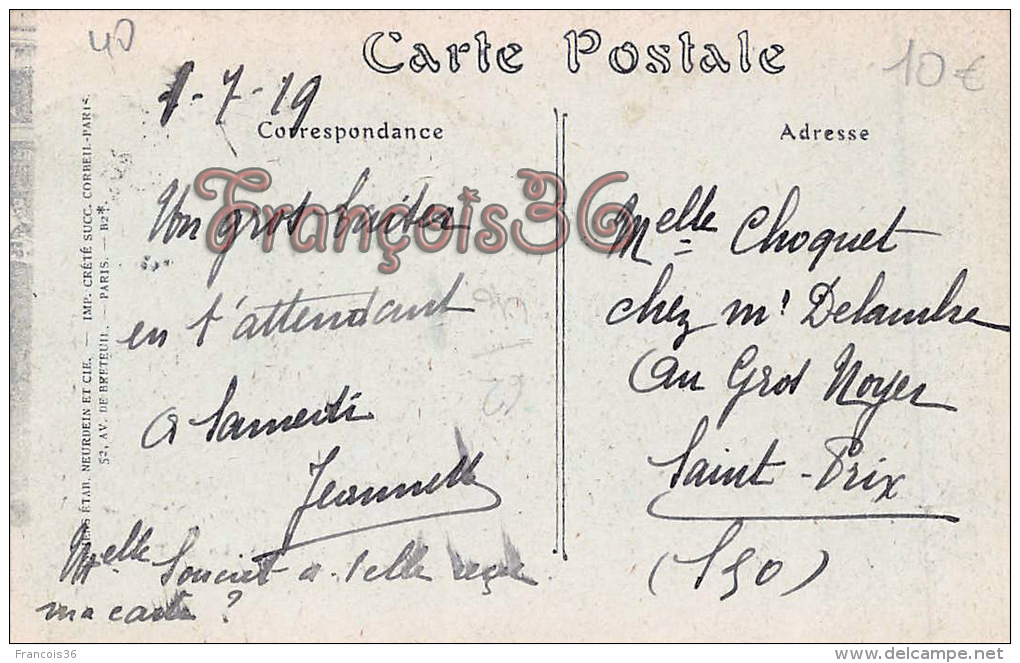 40
Carte Postale
10 €
1-7-19
Correspondance
Adresse
François36
Un gros baiser
en t'attendant
a samedi
Jeannette
Melle Souciet a t'elle reçue
ma carte ?
Melle Choquet
chez mr Delambre
au Gros Noyer
Saint-Prix
(S&O)
ÉTAB. NEURDEIN ET CIE. — IMP. CRÉTÉ SUCC. CORBEIL-PARIS.
52, AV. DE BRETEUIL. — PARIS. — B2*.
Francois36
www.delcampe.net